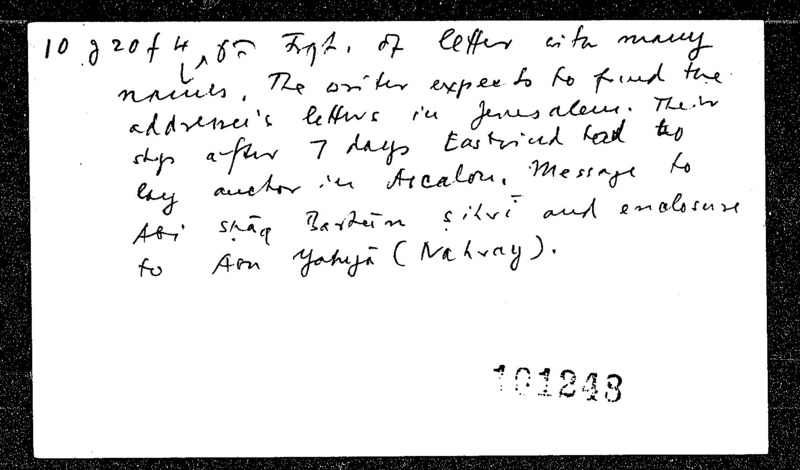 10 J 20 f 4, Frgt. of letter with many
names. The writer expects to find the
addressee's letters in Jerusalem. Their
ship after 7 days Eastwind had to
lay anchor in Ascalon. Message to
Abi and enclosure
to Abu Yahyā (Nahray).
101243